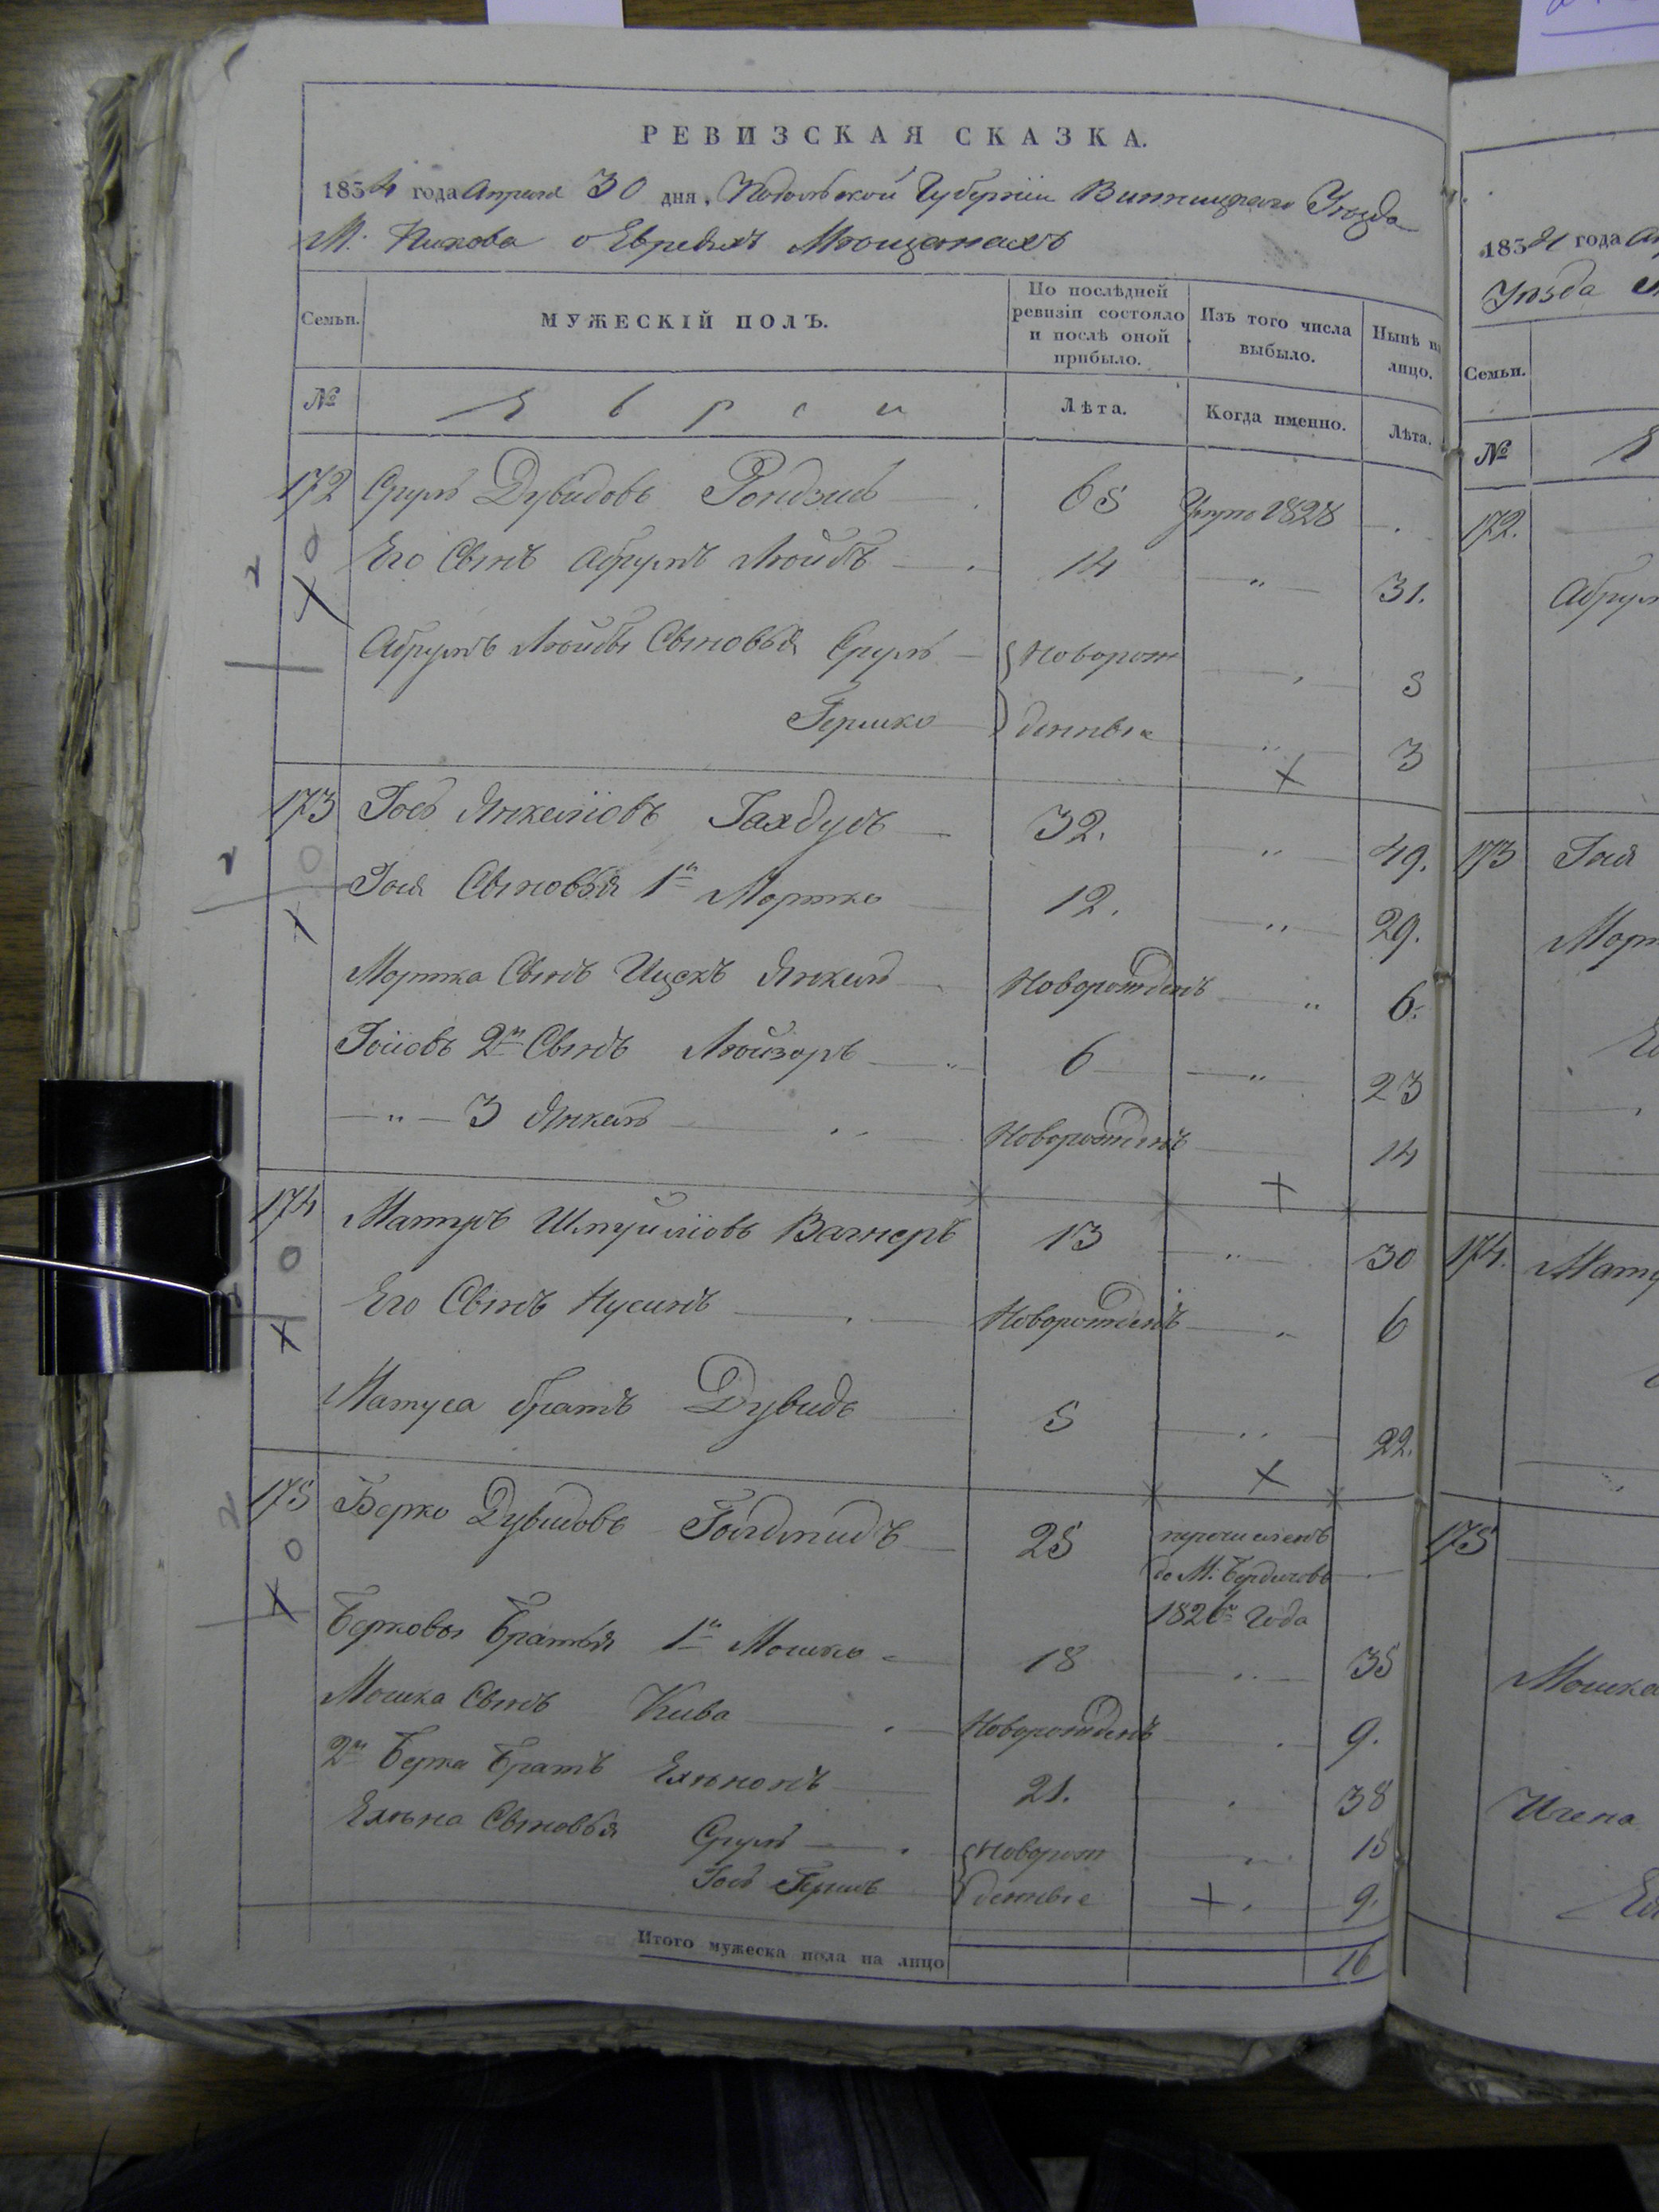 РЕВИЗСКАЯ СКАЗКА.
1834 года Апреля 30 дня, Подольской Губернии Винницкаго Уѣзда
М. Пикова о Евреяхъ Мѣщанахъ
Семьи.
МУЖЕСКІЙ ПОЛЪ.
По послѣдней ревизіи состояло и послѣ оной прибыло.
Изъ того числа выбыло.
Нынѣ на лицо.
№
Евреи
Лѣта.
Когда именно.
Лѣта.
172 Сруль Дувидовъ 65 Умре 1828
Его Сынъ Абрумъ Лейбъ 14 " 31.
Абрумъ Лейбы Сыновья Сруль Новорож 5
Гершко денные " 3
173 Іось Янкелiовъ 32. " 49.
Іося Сыновья 1й Мортко 12. " 29.
Мортка Сынъ Ицекъ Янкель Новорожденъ " 6.
Іосiовъ 2й Сынъ Лейзоръ 6 " 23
" 3 Янкель Новорожденъ 14
174 Матусъ Шмуйлiовъ Вагнеръ 13 " 30
Его Сынъ Нусинъ Новорожденъ " 6
Матуса братъ Дувидъ 5 " 22.
175 Берко Дувидовъ 25 перечисленъ
до М. Бердичовъ
1826го Года
Берковы Братья 1й Мошко 18 " 35
Мошка Сынъ Кива Новорожденъ 9.
2й Берка Братъ 21. 38
Сыновья Сруль Новорож 15
Іось Гершъ денные 9.
Итого мужеска пола на лицо 16
1834 года
Уѣзда
Семьи.
№
172.
173 Іося
174.
175
Мошка